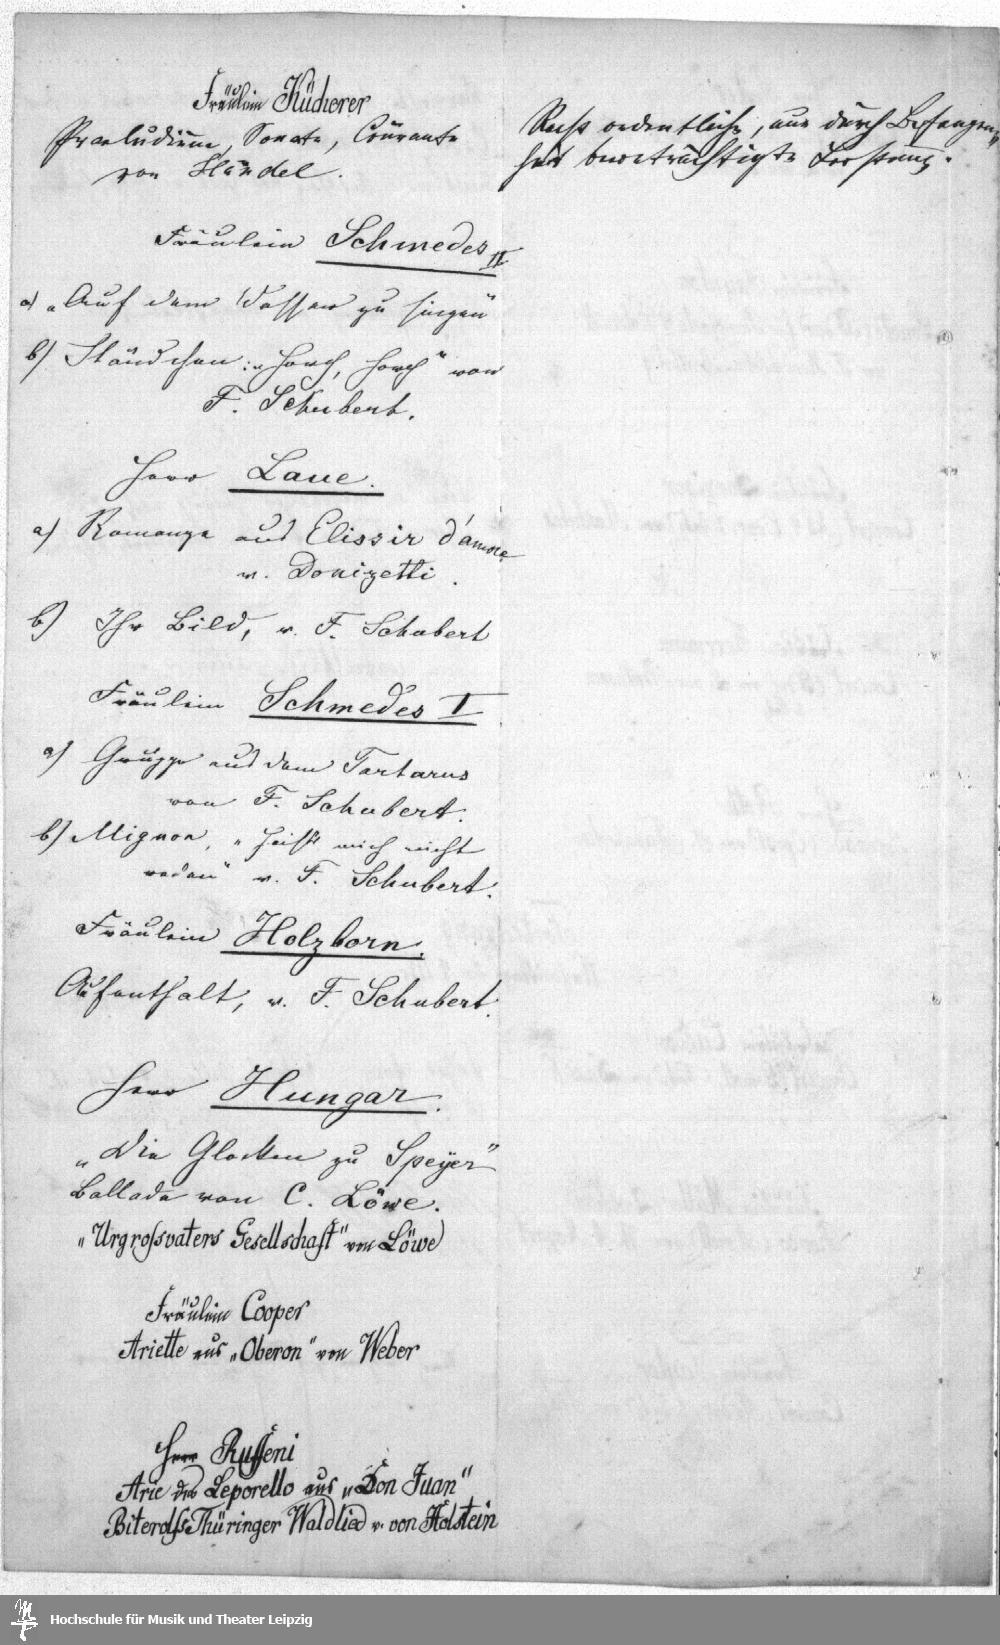 Fräulein Kücherer
Praeludium, Sonate, Courante
von Händel.
Recht ordentliche, nur durch Befangen-
heit beeinträchtigte Leistung.
Fräulein Schmedes II
a) „Auf dem Wasser zu singen"
b) Ständchen: „Horch, horch" von
F. Schubert.
Herr Laue.
a) Romanze aus Elissir d'amore
v. Donizetti.
b) Ihr Bild, v. F. Schubert
Fräulein Schmedes I
a) Gruppe aus dem Tartarus
von F. Schubert.
b) Mignon, „Heiß mich nicht
reden" v. F. Schubert.
Fräulein Holzborn.
Aufenthalt, v. F. Schubert.
Herr Hungar.
„Die Glocken zu Speyer"
Ballade von C. Löwe.
„Urgrossvaters Gesellschaft" von Löwe
Fräulein Cooper
Ariette aus „Oberon" von Weber
Herr Ruffeni
Arie des Leporello aus „Don Juan"
Biterolfs Thüringer Waldlied v. von Holstein
Hochschule für Musik und Theater Leipzig